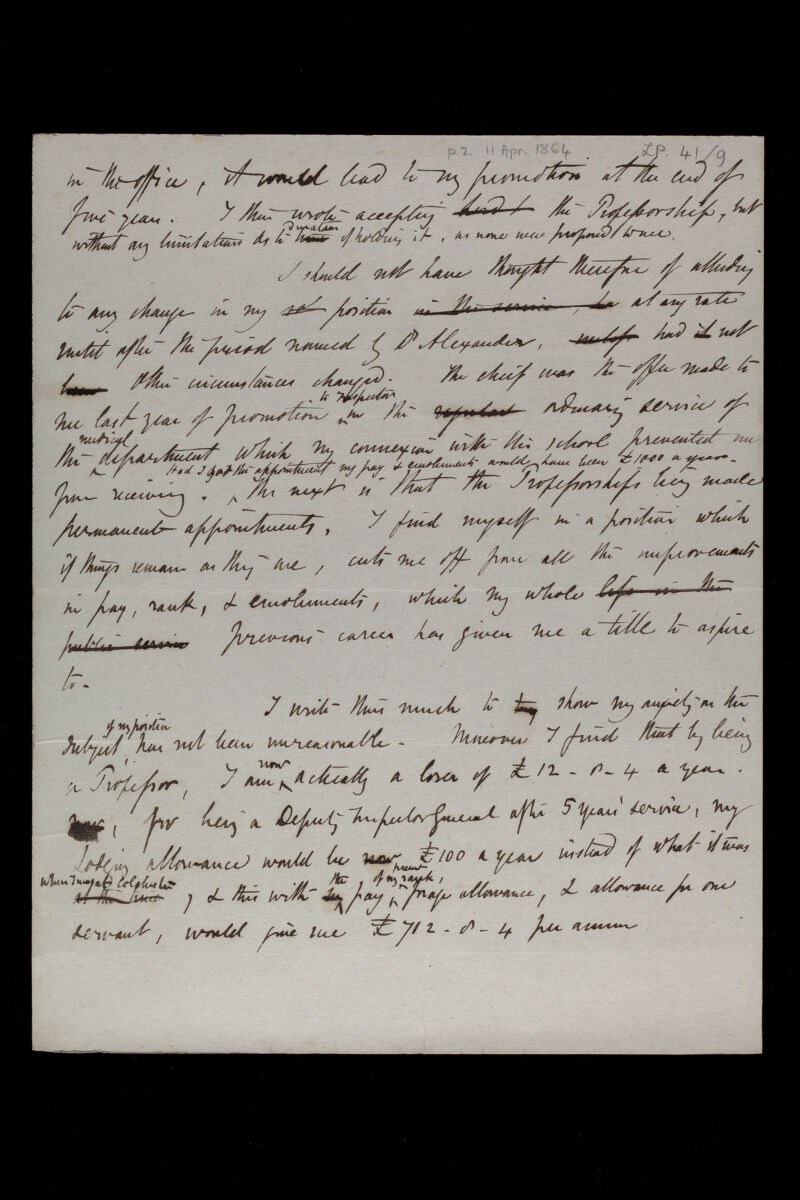 p.2. 11 Apr. 1864 LP. 41/9
in the office, it would lead to my promotion at the end of
five years. I then wrote accepting the Professorship, but
without any limitation as to duration of holding it, as none were proposed to me.
I should not have thought therefore of alluding
to any change in my position in the service, at any rate
until after the period named by Dr Alexander, unless had it not
been other circumstances changed. The chief was the offer made to
to Inspector
me last year of promotion in the regular ordinary service of
medical
the department which my connexion with this school prevented me
Had I got the appointment my pay & emoluments would have been £1000 a year.
from receiving. The next is that the Professorships being made
permanent appointments, I find myself in a position which
if things remain as they are, cuts me off from all the improvements
in pay, rank, & emoluments, which my whole life in the
public service previous career has given me a title to aspire
to.
I write thus much to show my anxiety on the
of my position
subject has not been unreasonable. Moreover I find that by being
now
a Professor, I am actually a loser of £12-8-4 a year.
now, for being a Deputy Inspector General after 5 years' service, my
Lodging allowance would be now £100 a year instead of what it was
when I was at Colchester the of my present rank,
at this time, & this with my pay, forage allowance, & allowance for one
servant, would give me £712-8-4 per annum